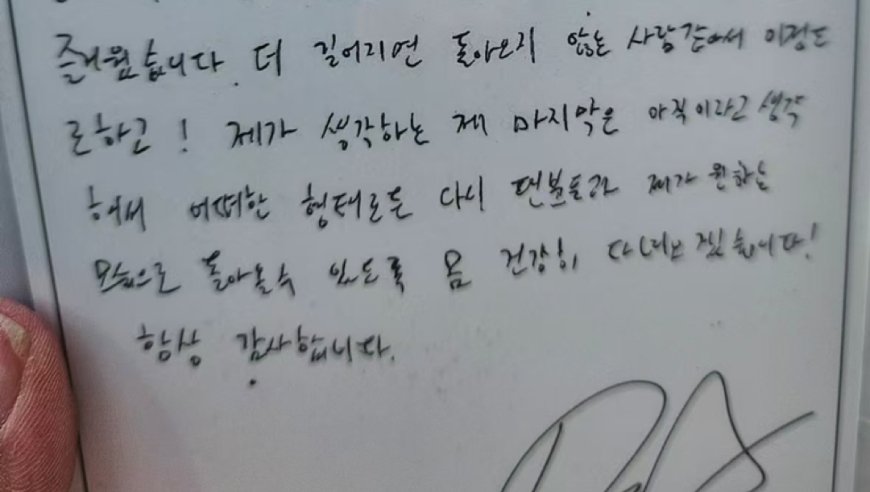 즐거웠습니다. 더 길어지면 돌아오지 않는 사람 같아서 이정도
로하고! 제가 생각하는 제 마지막은 아직이라고 생각
해서 어떠한 형태로든 다시 팬분들과 제가 원하는
모습으로 돌아올수 있도록 몸 건강히 다녀오겠습니다!
항상 감사합니다.